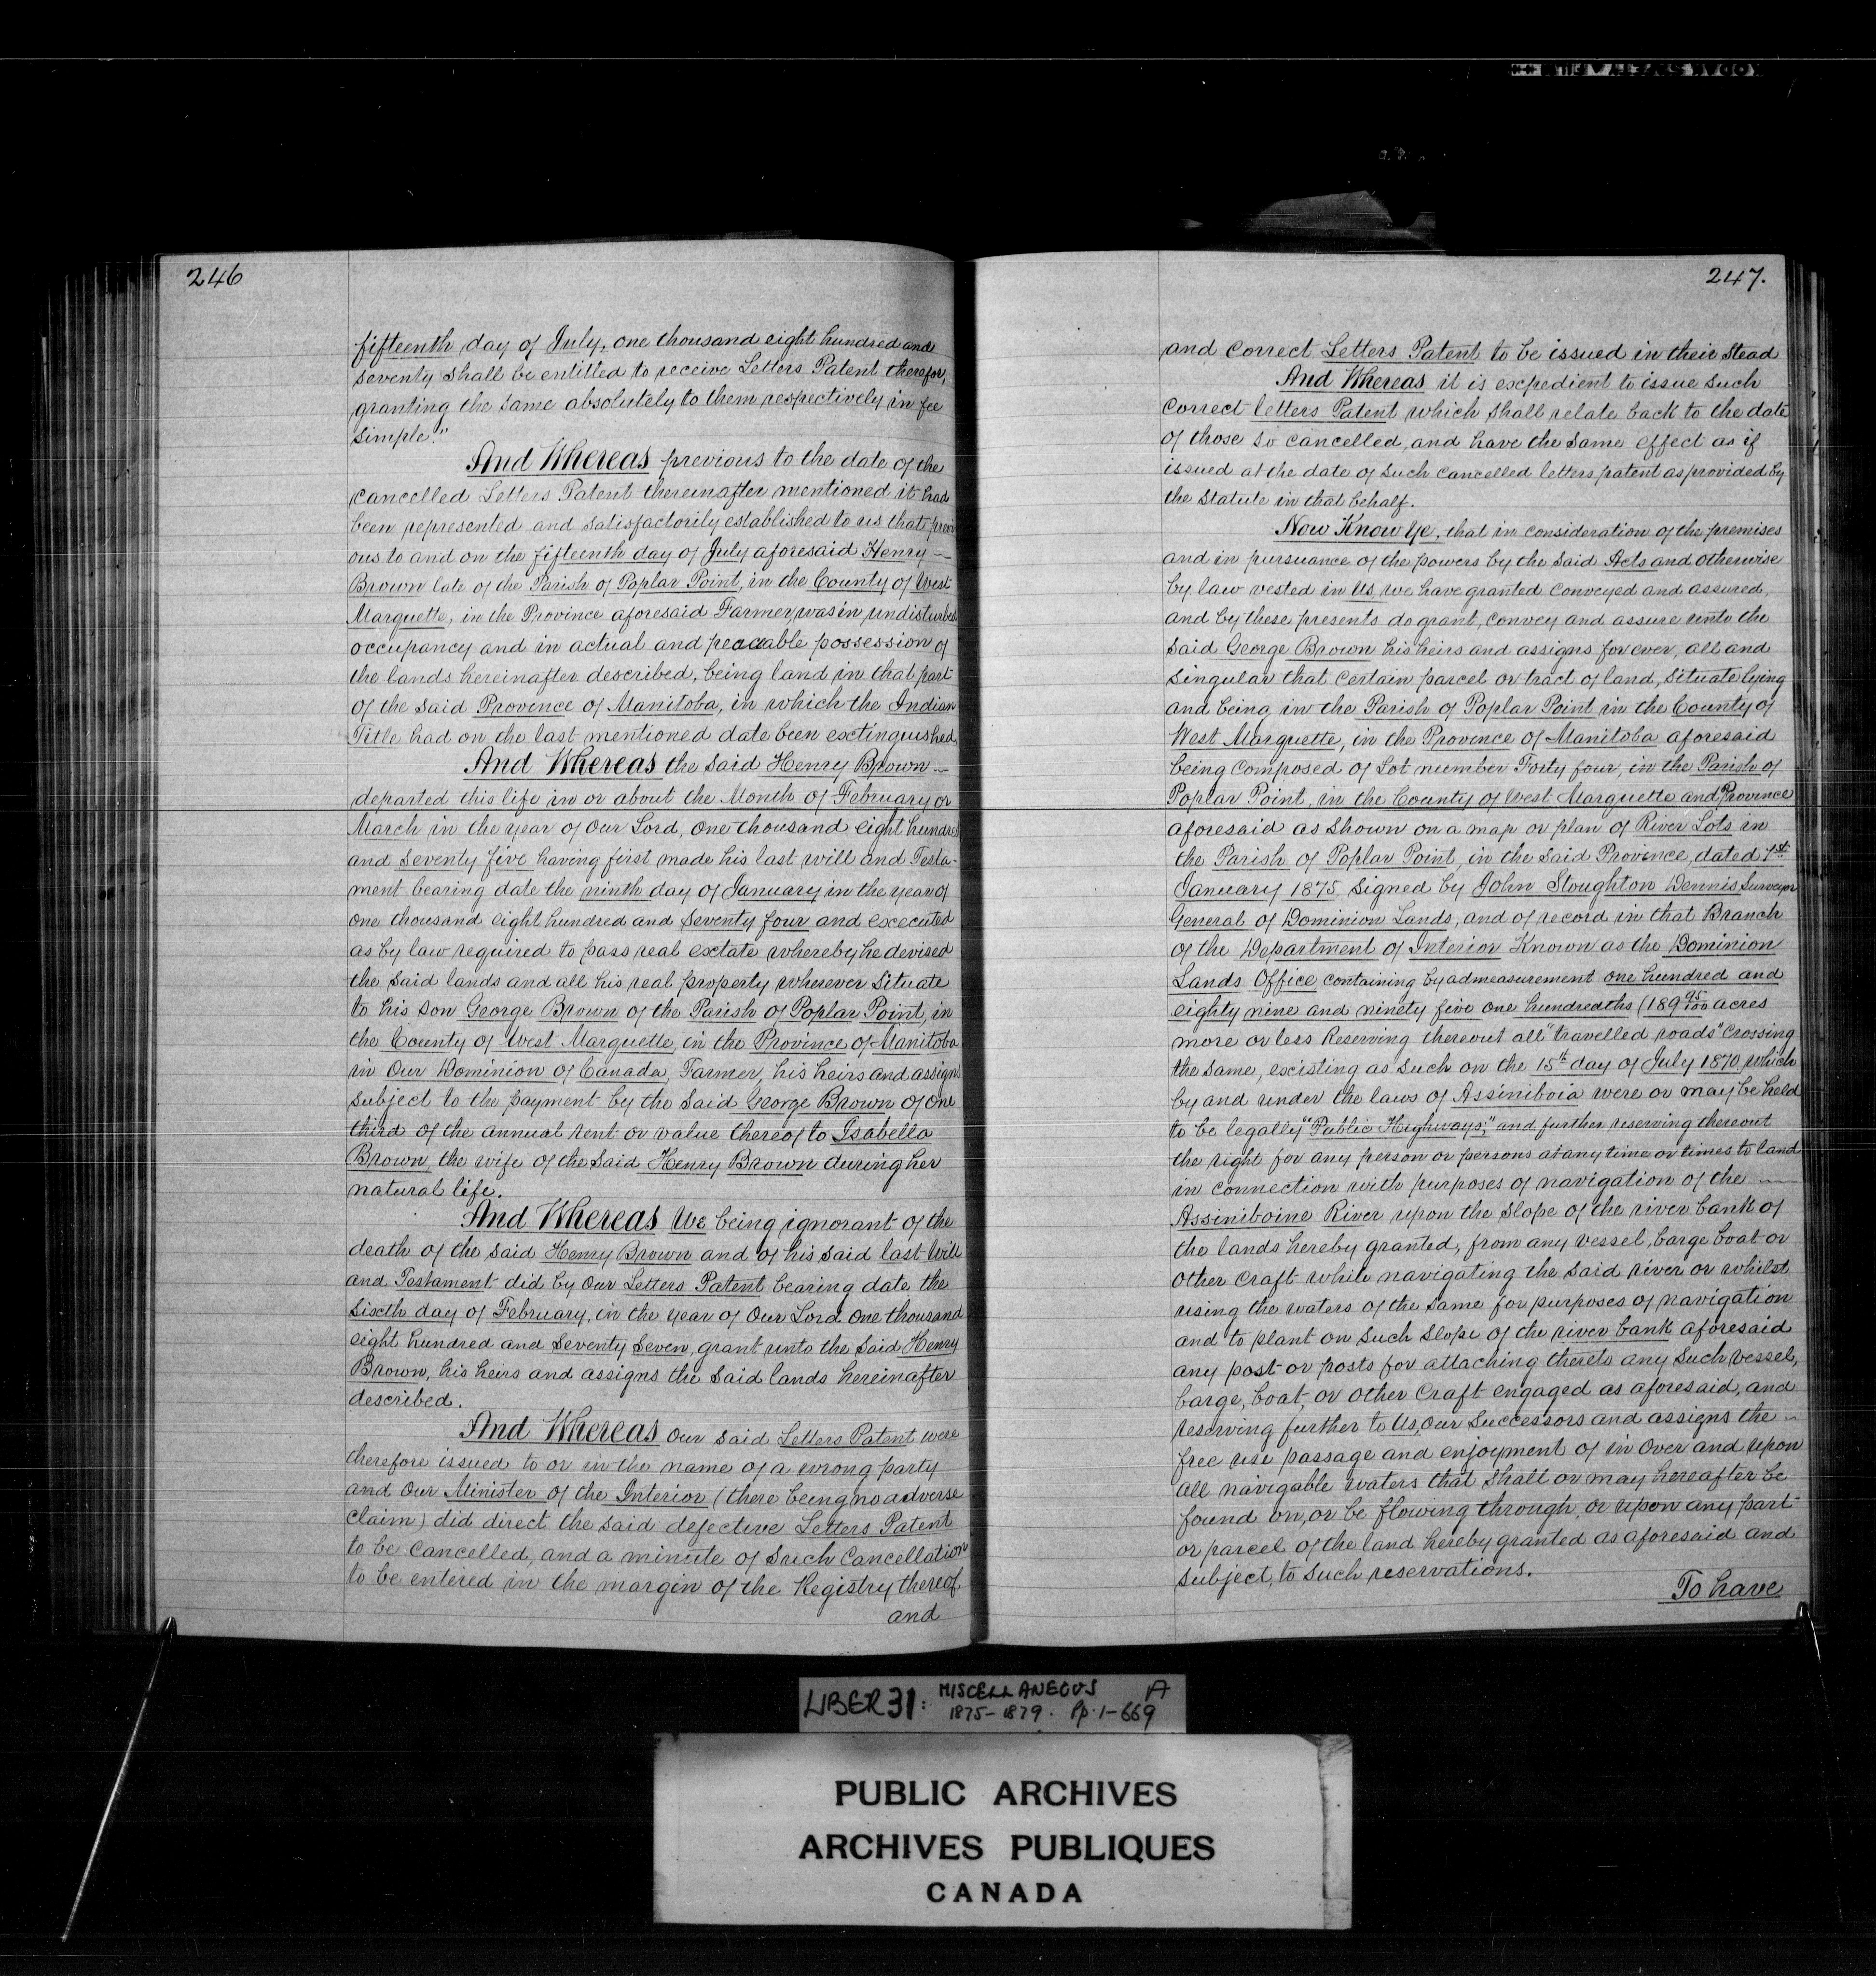 246
fifteenth day of July, one thousand eight hundred and
seventy shall be entitled to receive Letters Patent therefor,
granting the same absolutely to them respectively in fee
simple."
And Whereas previous to the date of the
cancelled Letters Patent thereinafter mentioned it had
been represented and satisfactorily established to us that previ
ous to and on the fifteenth day of July aforesaid Henry
Brown late of the Parish of Poplar Point, in the County of West
Marquette, in the Province aforesaid Farmer, was in undisturbed
occupancy and in actual and peacable possession of
the lands hereinafter described, being land in that part
of the said Province of Manitoba, in which the Indian
Title had on the last mentioned date been exctinguished.
And Whereas the said Henry Brown
departed this life in or about the Month of February or
March in the year of Our Lord, One thousand eight hundred
and seventy five having first made his last will and Testa-
ment bearing date the ninth day of January in the year of
one thousand eight hundred and seventy four and excecuted
as by law required to pass real esctate whereby he devised
the said lands and all his real property wherever situate
to his son George Brown of the Parish of Poplar Point, in
the County of West Marquette, in the Province of Manitoba
in Our Dominion of Canada, Farmer, his heirs and assigns
subject to the payment by the said George Brown of one
third of the annual rent or value thereof to Isabella
Brown, the wife of the said Henry Brown during her
natural life.
And Whereas We being ignorant of the
death of the said Henry Brown and of his said last Will
and Testament did by Our Letters Patent bearing date the
Sixcth day of February, in the year of Our Lord One thousand
eight hundred and seventy seven, grant unto the said Henry
Brown, his heirs and assigns the said lands hereinafter
described.
And Whereas Our said Letters Patent were
therefore issued to or in the name of a wrong party
and Our Minister of the Interior (there being no adverse
claim) did direct the said defective Letters Patent
to be cancelled, and a minute of such Cancellation
to be entered in the margin of the Registry thereof
and
247.
and correct Letters Patent to be issued in their stead
And Whereas it is excpedient to issue such
correct letters Patent which shall relate back to the date
of those so cancelled, and have the same effect as if
issued at the date of such cancelled letters patent as provided by
the statute in that behalf.
Now Know Ye, that in consideration of the premises
and in pursuance of the powers by the said Acts and otherwise
by law vested in Us, we have granted conveyed and assured,
and by these presents do grant, convey and assure unto the
said George Brown his heirs and assigns for ever, all and
singular that certain parcel or tract of land, situate lying
and being in the Parish of Poplar Point in the County of
West Marquette, in the Province of Manitoba aforesaid
being composed of Lot number Forty four, in the Parish of
Poplar Point, in the County of West Marquette and Province
aforesaid as shown on a map or plan of River Lots in
the Parish of Poplar Point, in the said Province, dated 1st
January 1875 signed by John Stoughton Dennis Surveyor
General of Dominion Lands, and of record in that Branch
of the Department of Interior Known as the Dominion
Lands Office containing by admeasurement one hundred and
eighty nine and ninety five one hundredths (189 95/100 acres
more or less Reserving thereout all "travelled roads" crossing
the same, excisting as such on the 15th day of July 1870 which
by and under the laws of Assiniboia were or may be held
to be legally "Public Highways;" and further reserving thereout
the right for any person or persons at any time or times to land
in connection with purposes of navigation of the
Assiniboine River upon the slope of the river bank of
the lands hereby granted, from any vessel, barge boat or
other craft while navigating the said river or whilst
using the waters of the same for purposes of navigation
and to plant on such slope of the river bank aforesaid
any post or posts for attaching thereto any such vessel,
barge, boat, or other craft engaged as aforesaid, and
reserving further to Us, Our Successors and assigns the
free use passage and enjoyment of in over and upon
all navigable waters that shall or may hereafter be
found on, or be flowing through, or upon any part
or parcel of the land hereby granted as aforesaid and
subject, to such reservations.
To have
LIBER 31: MISCELLANEOUS A
1875-1879. Pp. 1-669
PUBLIC ARCHIVES
ARCHIVES PUBLIQUES
CANADA